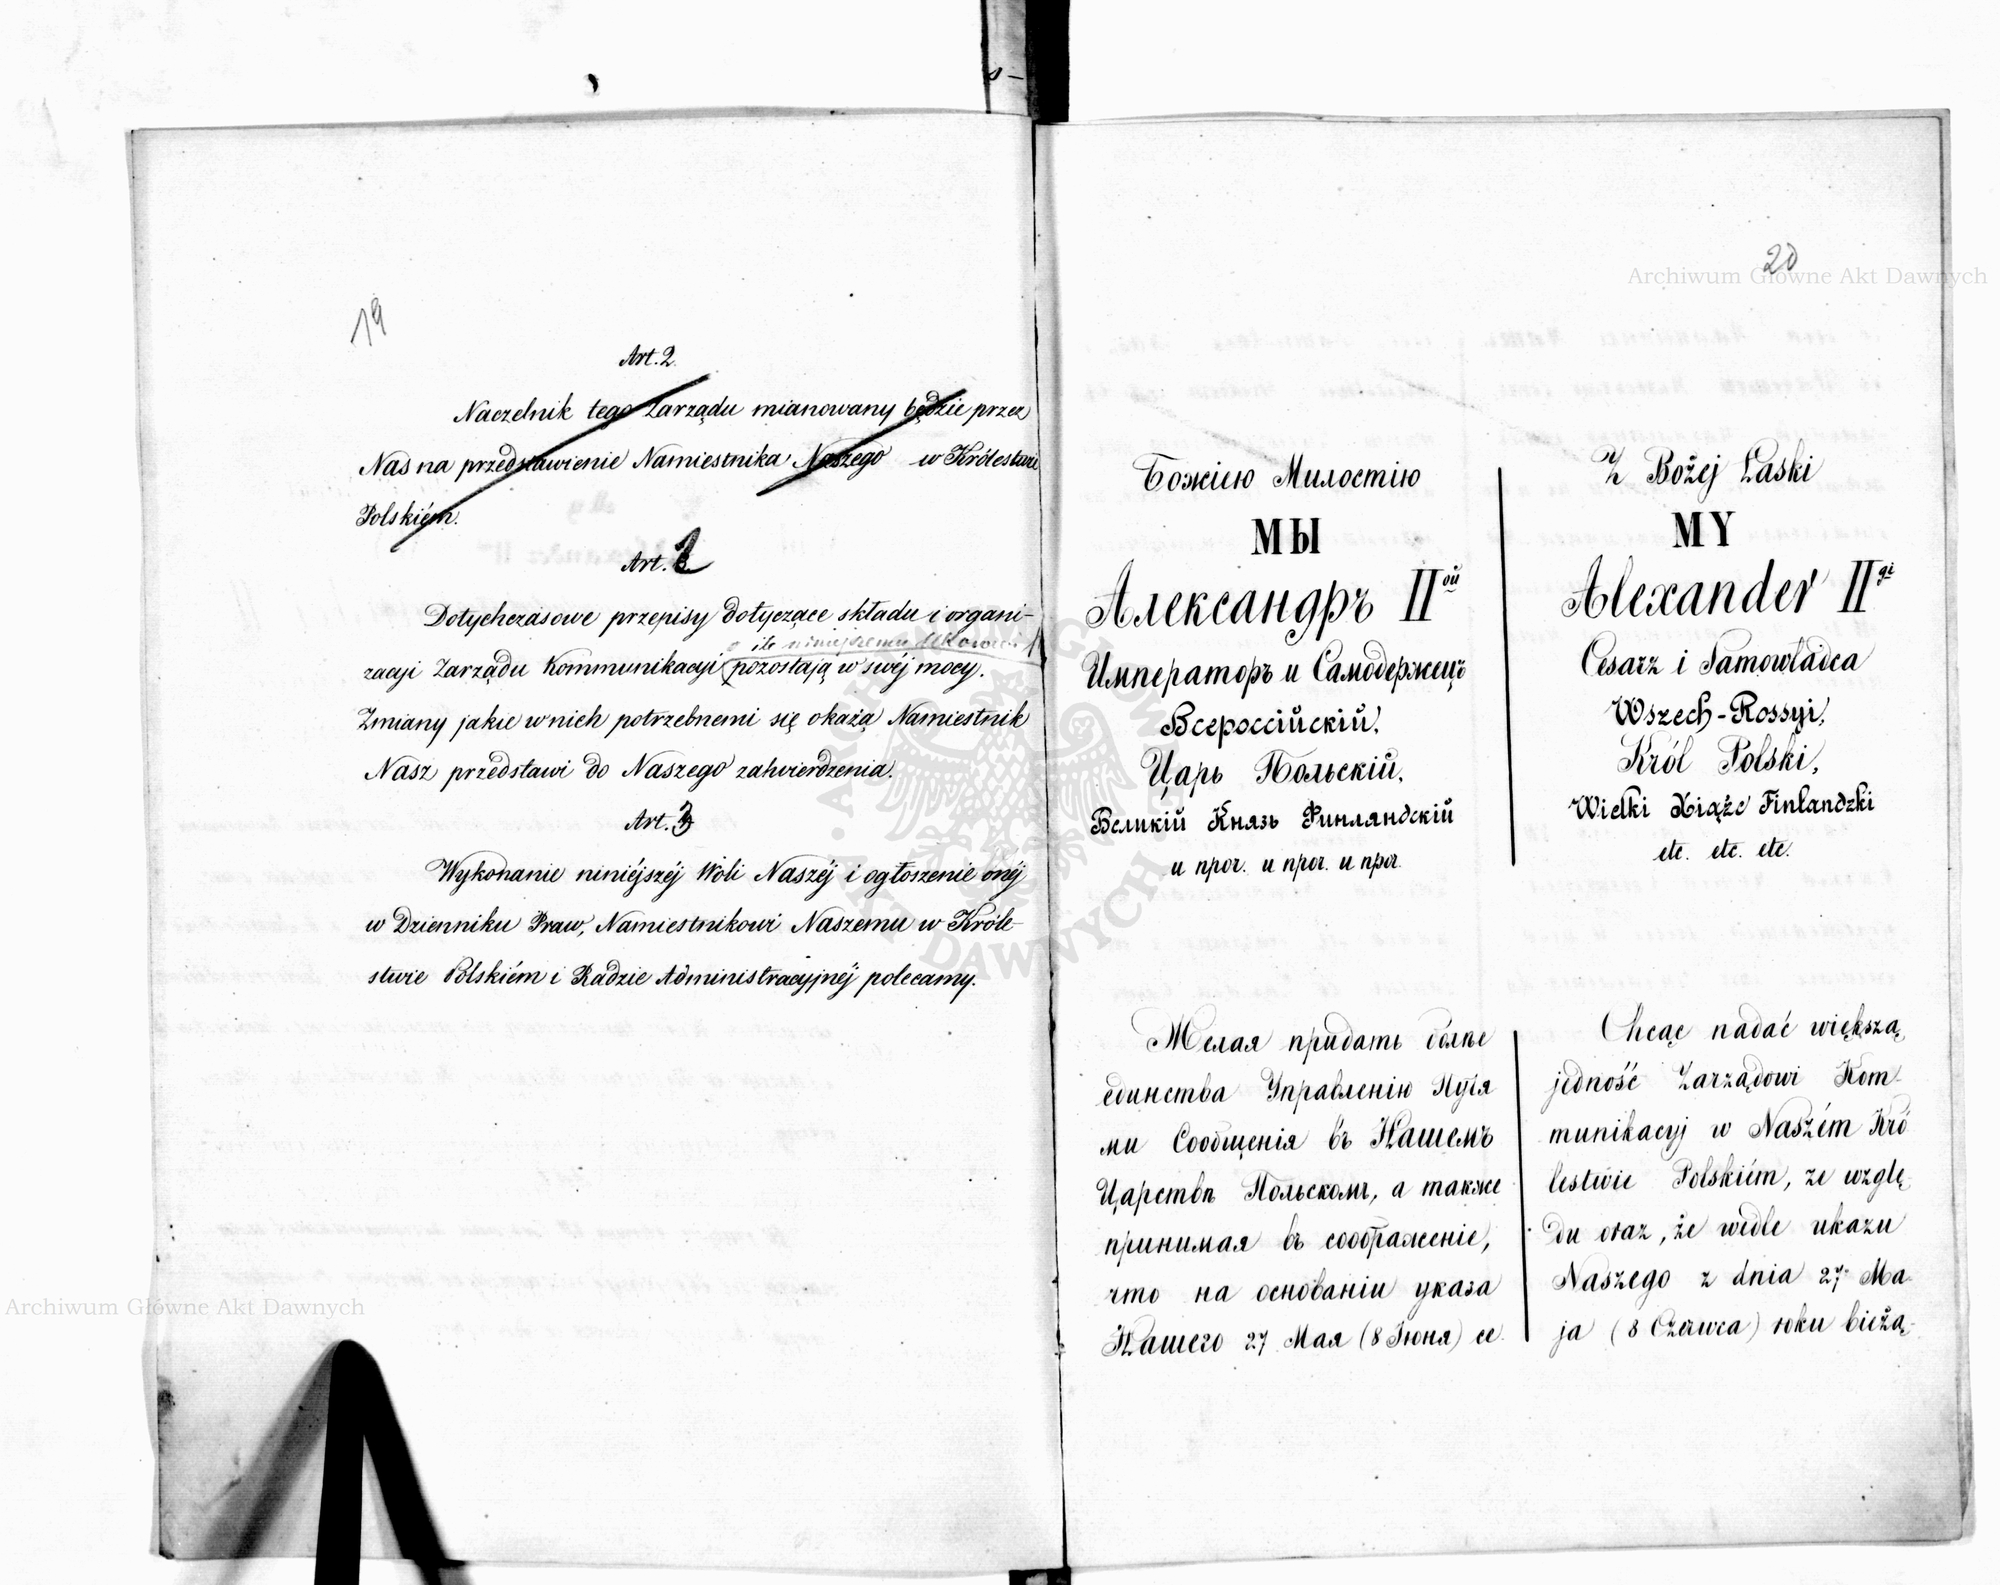 19
Art. 2.
Naczelnik tego Zarządu mianowany będzie przez
Nas na przedstawienie Namiestnika Naszego w Królestwie
Polskiém.
Art. 2
Dotychczasowe przepisy dotyczące składu i organi-
o ile niniejszemu Ukazowi
zacyi Zarządu Kommunikacyi pozostają w swéj mocy.
Zmiany jakie w nich potrzebnemi się okażą Namiestnik
Nasz przedstawi do Naszego zatwierdzenia.
Art. 3
Wykonanie niniéjszéj Woli Naszéj i ogłoszenie onéj
w Dzienniku Praw, Namiestnikowi Naszemu w Króle-
stwie Polskiém i Radzie Administracyjnéj polecamy.
20
Божіею Милостію
МЫ
Александръ II ой
Императоръ и Самодержецъ
Всероссійскій,
Царь Польскій,
Великій Князь Финляндскій
и проч. и проч. и проч.
Желая придать болѣе
единства Управленію Путя
ми Сообщенія въ Нашемъ
Царствѣ Польскомъ, а также
принимая въ соображеніе,
что на основаніи указа
Нашего 27 Мая (8 Іюня) се
Z Bożej Łaski
MY
Alexander II gi
Cesarz i Samowładca
Wszech-Rossyi,
Król Polski,
Wielki Xiążę Finlandzki
etc. etc. etc.
Chcąc nadać większą
jedność Zarządowi Kom-
munikacyj w Naszém Kró
lestwie Polskiém, ze wzglę-
du oraz, że wedle ukazu
Naszego z dnia 27 Ma-
ja (8 Czerwca) roku bieżą-
Archiwum Główne Akt Dawnych
Archiwum Główne Akt Dawnych